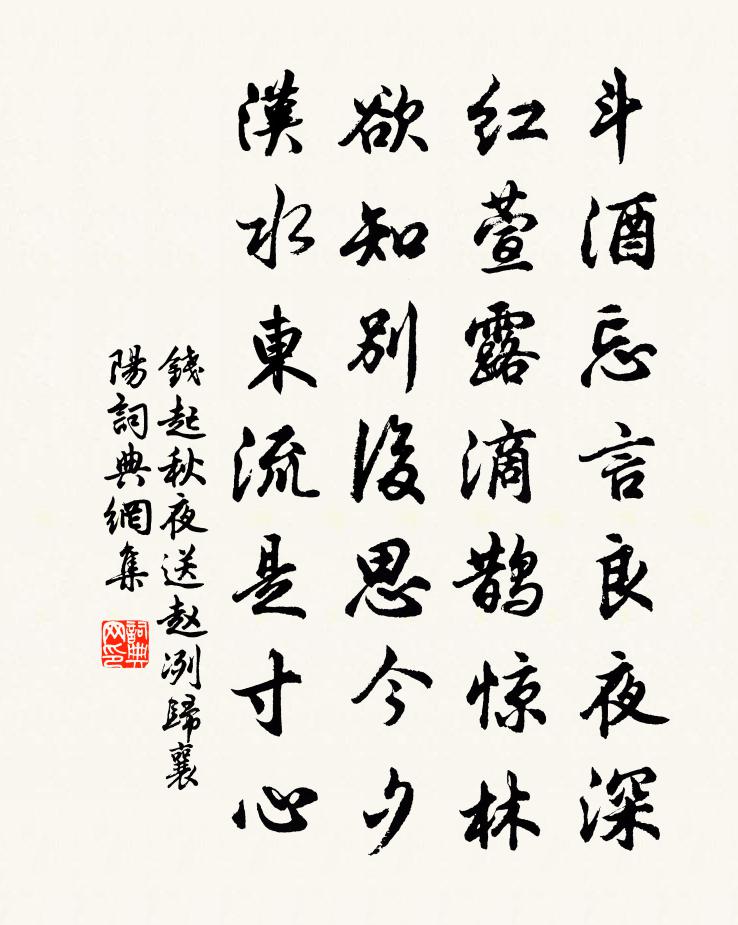 斗酒忘言良夜深
红萱露滴鹊惊林
欲知别後思今夕
漢水東流是寸心
錢起秋夜送赵冽歸襄
陽詞典網集
詞典
网印